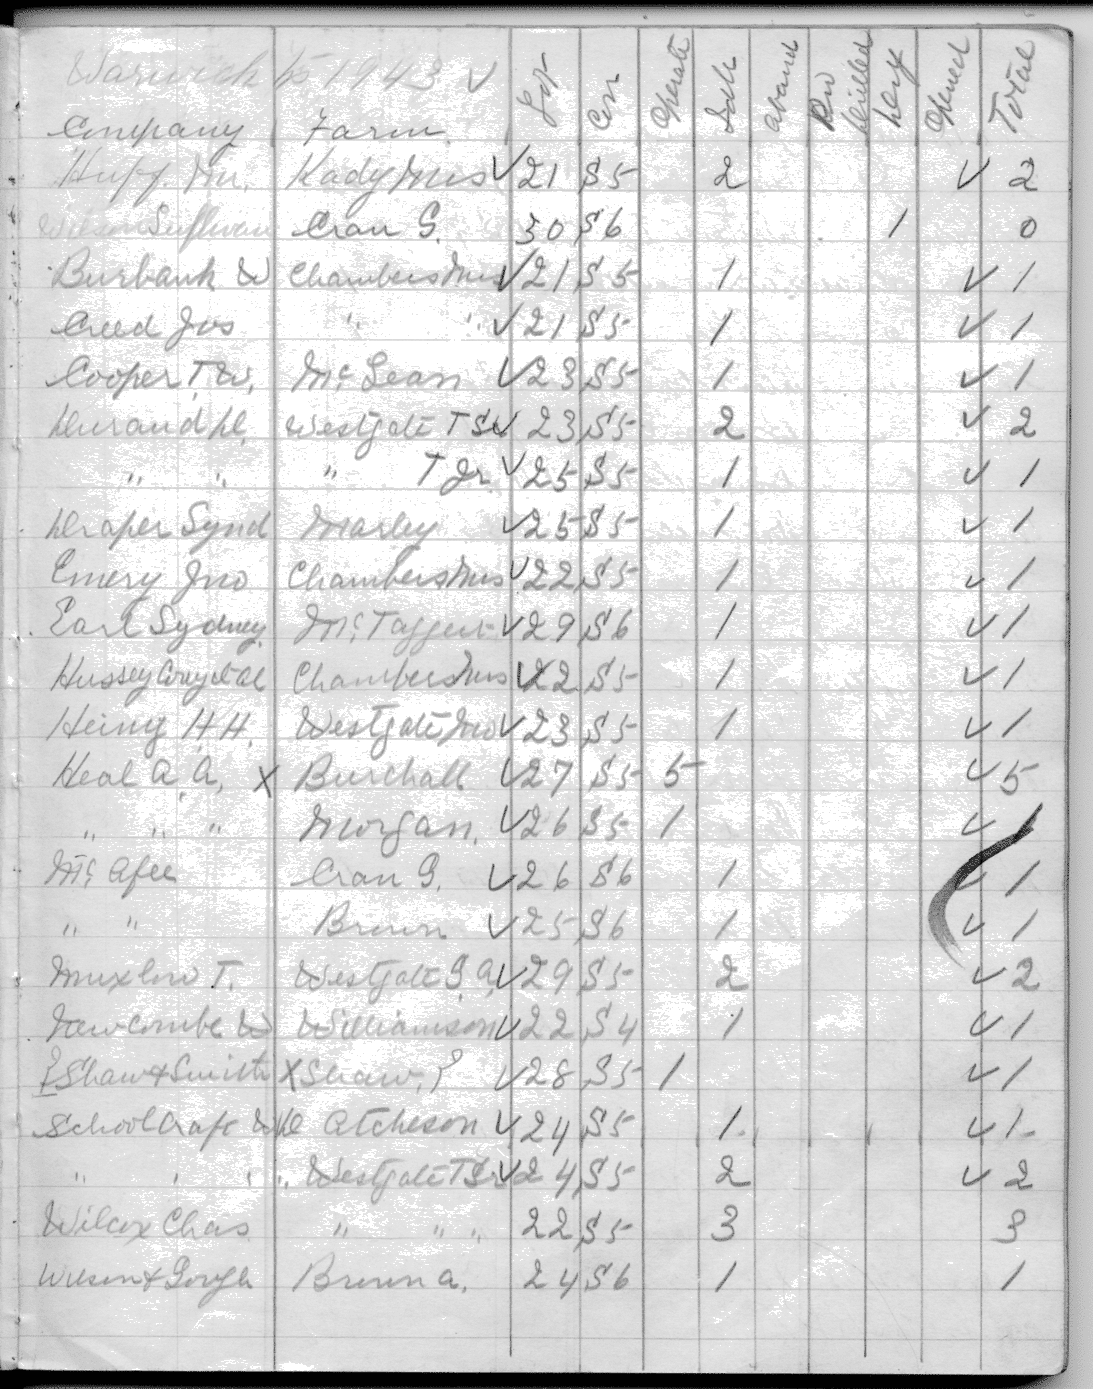 Warwick 1943 ✓
Company Farm Lot Con Operate Idle Aband Dry Drilled Deep Opened Total
Huff. Wm. Kady Mrs ✓ 21 S5 2 ✓ 2
Wilson Sullivan Cran G. 30 S6 1 0
Burbank W Chambers Mrs ✓ 21 S5 1 ✓ 1
Creed Jos " " ✓ 21 S5 1 ✓ 1
Cooper T.W. McLean ✓ 23 S5 1 ✓ 1
Durand D. Westgate T Sr ✓ 23 S5 2 ✓ 2
" " " T Jr ✓ 25 S5 1 ✓ 1
Draper Synd Marley ✓ 25 S5 1 ✓ 1
Emery Jno Chambers Mrs ✓ 22 S5 1 ✓ 1
Earl Sydney McTaggert ✓ 29 S6 1 ✓ 1
Hussey Chambers Mrs ✓ 22 S5 1 ✓ 1
Heiny H.H. Westgate ✓ 23 S5 1 ✓ 1
Heal A.A. X Burchall ✓ 27 S5 5 ✓ 5
" " " Morgan. ✓ 26 S5 1 ✓ 1
McAfee Cran G. ✓ 26 S6 1 ✓ 1
" " Brown ✓ 25 S6 1 ✓ 1
Muxlow T. Westgate G.A. ✓ 29 S5 2 ✓ 2
Newcombe W Williamson ✓ 22 S4 1 ✓ 1
Shaw & Smith X Shaw, P ✓ 28 S5 1 ✓ 1
Schoolcraft WD Atcheson ✓ 24 S5 1 ✓ 1
" " " " Westgate T Sr ✓ 24 S5 2 ✓ 2
Wilcox Chas " " " 22 S5 3 3
Wilson & Gough Brown A. 24 S6 1 1